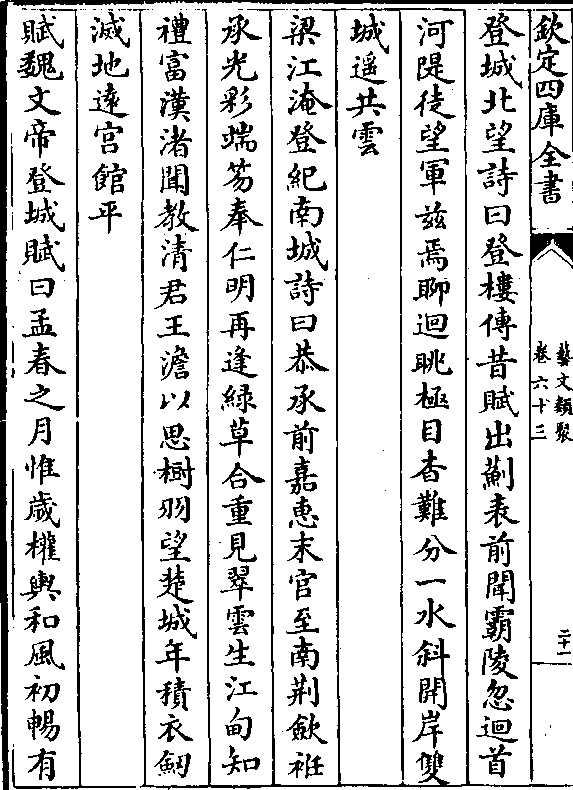 欽定四庫全書
藝文類聚
卷六十三
二十一
登城北望詩曰登樓傳昔賦出薊表前聞霸陵忽迴首
河隄徒望軍兹焉聊迴眺極目杳難分一水斜開岸雙
城遥共雲
梁江淹登紀南城詩曰恭承前嘉惠末官至南荆歛袵
承光彩端笏奉仁明再逢緑草合重見翠雲生江甸知
禮富漢渚聞教清君王澹以思樹羽望楚城年積衣劒
滅地遠宫館平
賦魏文帝登城賦曰孟春之月惟歳權輿和風初暢有